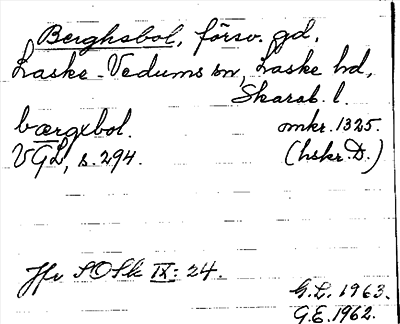 Berghsbol, försv. gd,
Laske-Vedums sn, Laske hd,
Skarab. l.
bærgxbol. omkr. 1325.
VGL, s. 294. (hskr. D.)
Jfr SOSk IX: 24.
G.L. 1963.
G.E. 1962.